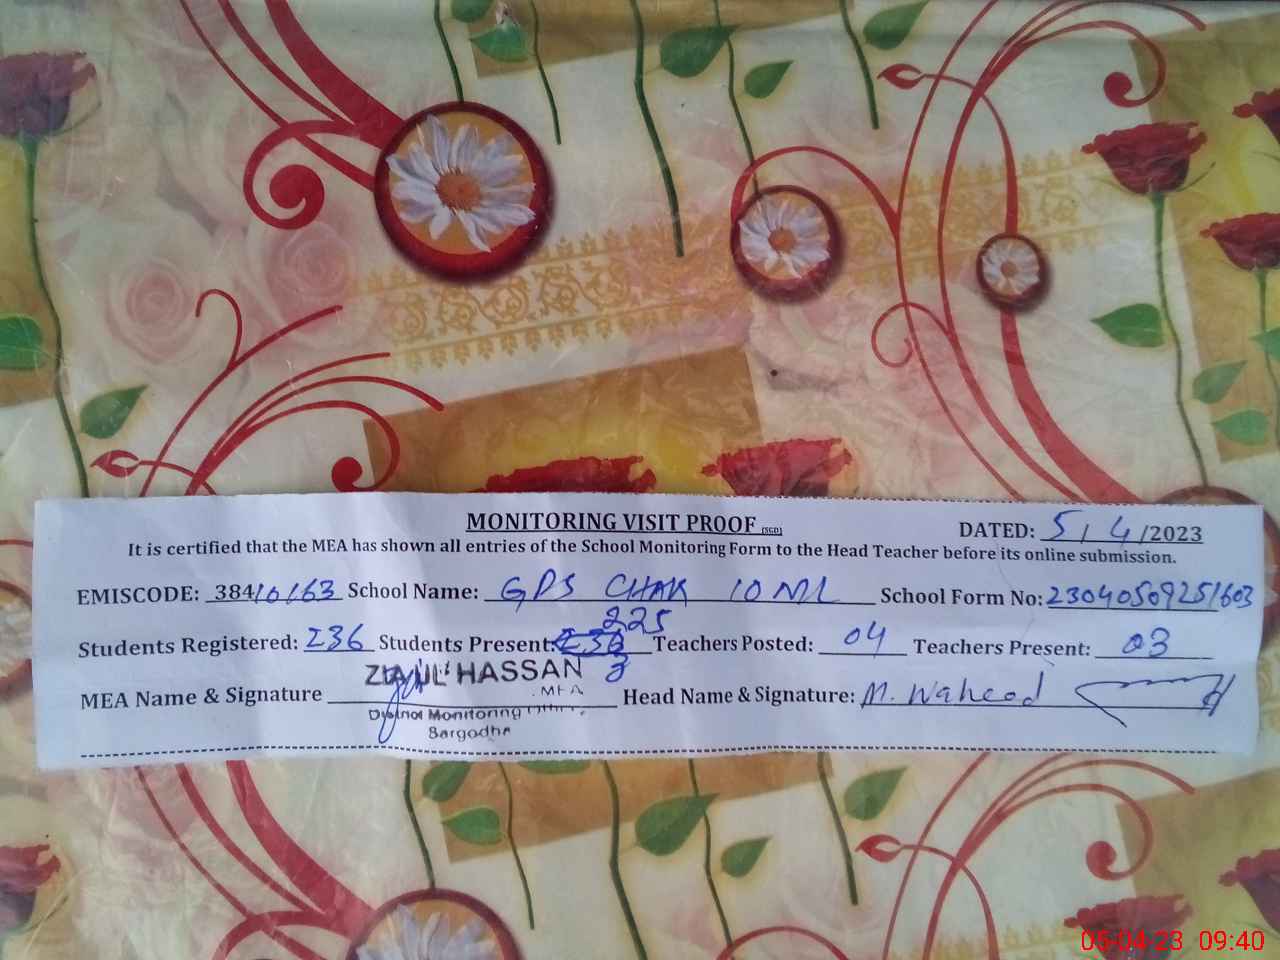 MONITORING VISIT PROOF (SGD)
DATED: 5/4/2023
It is certified that the MEA has shown all entries of the School Monitoring Form to the Head Teacher before its online submission.
EMISCODE: 38410163 School Name: GPS CHAK 10 ML School Form No: 23040509251603
225
Students Registered: 236 Students Present: 236 Teachers Posted: 04 Teachers Present: 03
ZIA UL HASSAN
MEA
MEA Name & Signature Head Name & Signature: M. Waheed
District Monitoring
Sargodha
05-04-23 09:40